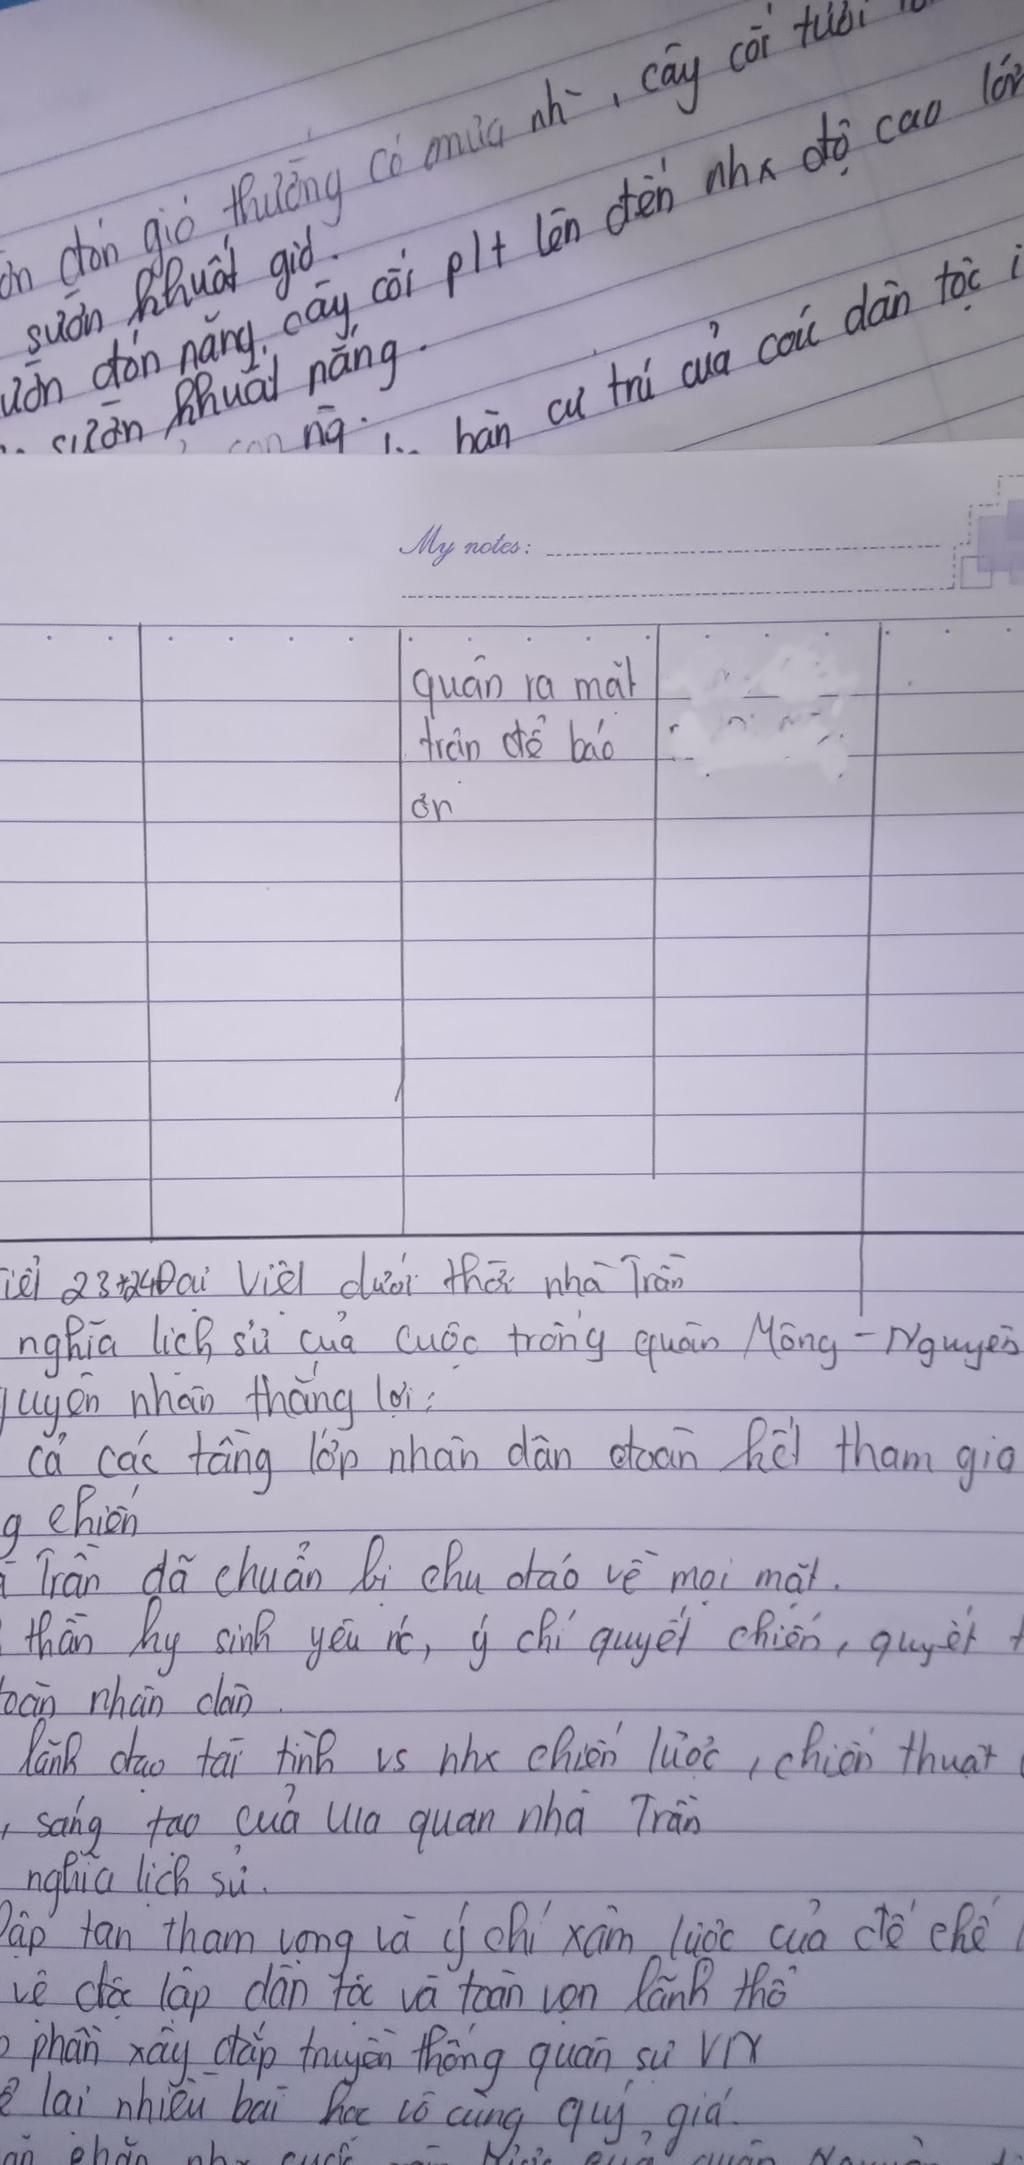 đón gió thường có mưa nh`, cây cối tươi
sườn khuất gió.
đón nắng, cây cối plt lên đến nhx độ cao lớn
sườn khuất nắng.
bàn cư trú của các dân tộc
My notes:
quân ra mặt
trận để báo
ơn
Tiết 23+24 Đại Việt dưới thời nhà Trần
nghĩa lịch sử của cuộc trống quân Mông - Nguyên
nhân thắng lợi:
cả các tầng lớp nhân dân đoàn kết tham gia
g chiến
Trần đã chuẩn bị chu đáo về mọi mặt.
thần hy sinh yêu nc, ý chí quyết chiến, quyết
nhân dân.
lãnh đạo tài tình vs nhx chiến lược, chiến thuật
, sáng tạo của vua quan nhà Trần
nghĩa lịch sử.
Đập tan tham vọng và ý chí xâm lược của đế chế
vệ độc lập dân tộc và toàn vẹn lãnh thổ
phần xây đắp truyền thống quân sự VN
lại nhiều bài học vô cùng quý giá.